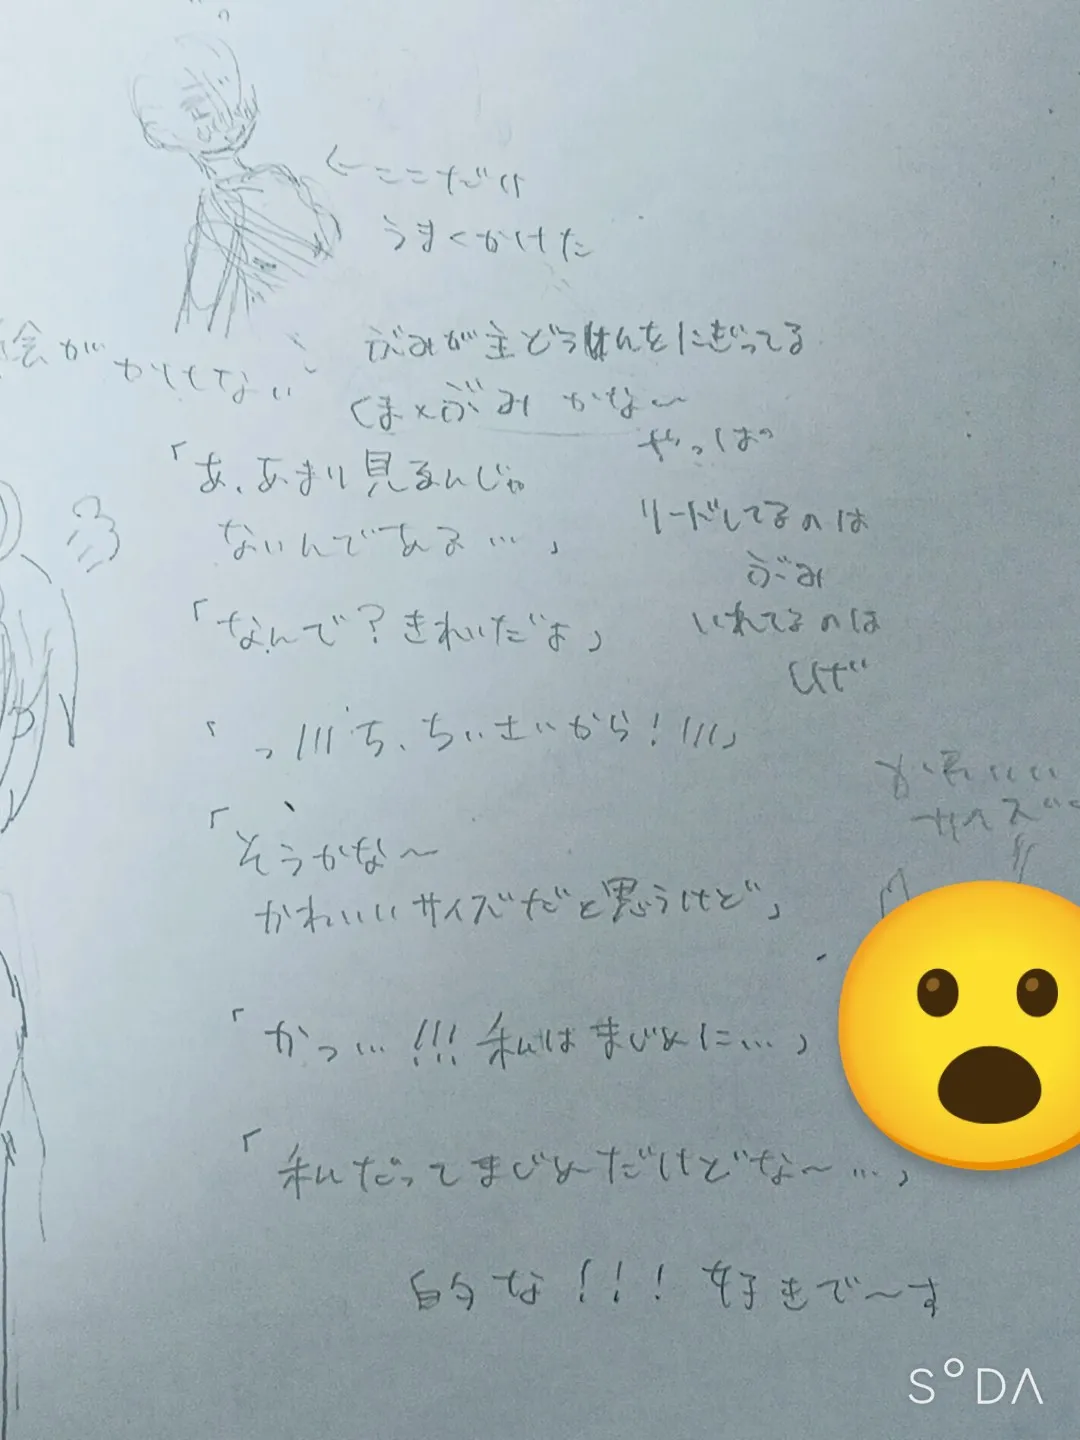 ←ここだけ
うまくかけた
絵がかけてない
ぶみが主どうけんをにぎってる
くま×ぶみ かな〜
やっぱ
リードしてるのは
ぶみ
いれてるのは
ひげ
「あ、あまり見るんじゃ
ないんである…」
「なんで？きれいだよ」
「っ///ち、ちいさいから！///」
「そうかな〜
かわいいサイズだと思うけど」
「かっ…!!!私はまじめに…」
「私だってまじめだけどな〜…」
的な！！！好きで〜す
かわいい
サイズ
S°DA